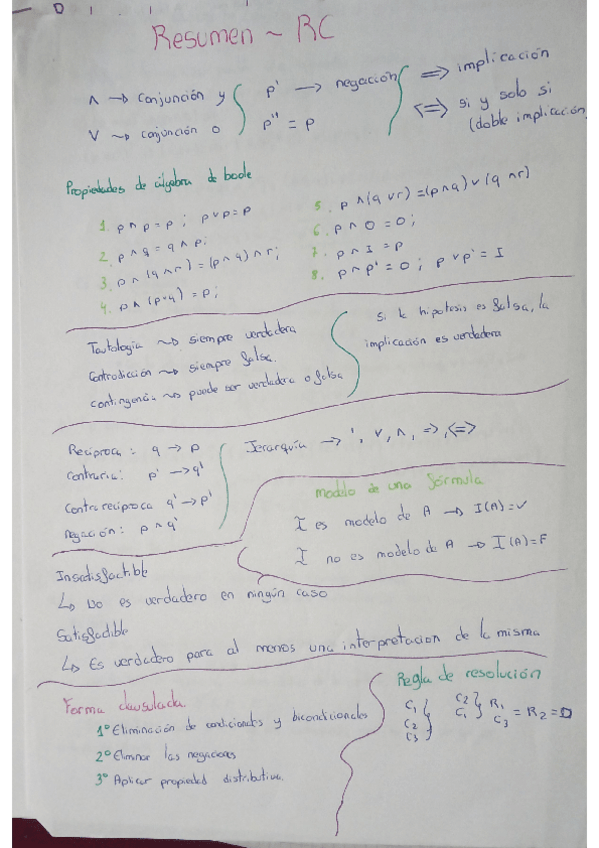 Resumen ~ RC
∧ → conjunción y
∨ → conjunción o
p' → negación
p'' = p
=> implicación
<=> si y solo si
(doble implicación)
Propiedades de álgebra de boole
1. p ∧ p = p ; p ∨ p = p
2. p ∧ q = q ∧ p;
3. p ∧ (q ∧ r) = (p ∧ q) ∧ r;
4. p ∧ (p ∨ q) = p;
5. p ∧ (q ∨ r) = (p ∧ q) ∨ (q ∧ r)
6. p ∧ 0 = 0;
7. p ∧ I = p
8. p ∧ p' = 0 ; p ∨ p' = I
Tautología → siempre verdadera
Contradicción → siempre falsa.
contingencia → puede ser verdadera o falsa
Si la hipotesis es falsa, la
implicación es verdadera
Recíproca: q → p
Contraria: p' → q'
Contrarecíproca q' → p'
negación: p ∧ q'
Jerarquía → ', ∨, ∧, =>, <=>
Modelo de una fórmula
I es modelo de A → I(A)=V
I no es modelo de A → I(A)=F
Insatisfactible
↳ No es verdadero en ningún caso
Satisfadible
↳ Es verdadero para al menos una interpretacion de la misma
Forma clausulada.
1º Eliminación de condicionales y bicondicionales
2º Eliminar las negaciones
3º Aplicar propiedad distributiva.
Regla de resolución
C₁
C₂
C₃
C₂
C₁
R₁
C₃
= R₂ = □